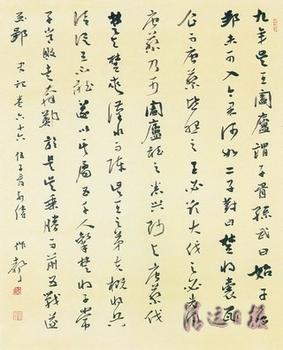 九年吳王闔廬謂子胥孫武曰始子言
郢未可入今果何如二子對曰楚將囊瓦
貪而唐蔡皆怨之王必欲大伐之必先得
唐蔡乃可闔廬聽之悉興師與唐蔡伐
楚與楚夾漢水而陳吳王之弟夫概將兵
請從王不聽遂以其屬五千人擊楚將子常
子常敗走奔鄭於是吳乘勝而前五戰遂
至郢 史記卷六十六 伍子胥列傳
清远日报